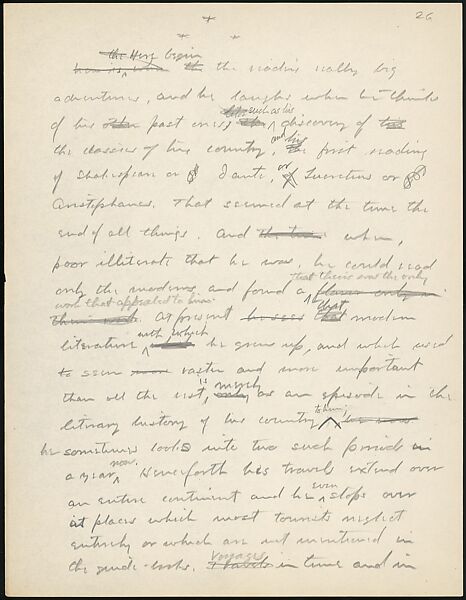 26
the Here begin
the the reader's really big
adventures, and he laughs when he thinks
of his other past ones, such as his discovery of his
the classics of his country, and his first reading
of Shakespeare or of Dante, or of Lucretius or of
Aristophanes. That seemed at the time the
end of all things. And when,
poor illiterate that he was, he could read
only the moderns and found a that theirs was the only
work that appealed to him. At present he sees that modern
literature with which he grew up, and which used
to seem more vaster and more important
than all the rest, is only merely as an episode in the
literary history of his country to him,
he sometimes looks into two such periods in
a year now. Henceforth his travels extend over
an entire continent and he even stops over
at places which most tourists neglect
entirely or which are not mentioned in
the guide-books. Travels voyages in time and in